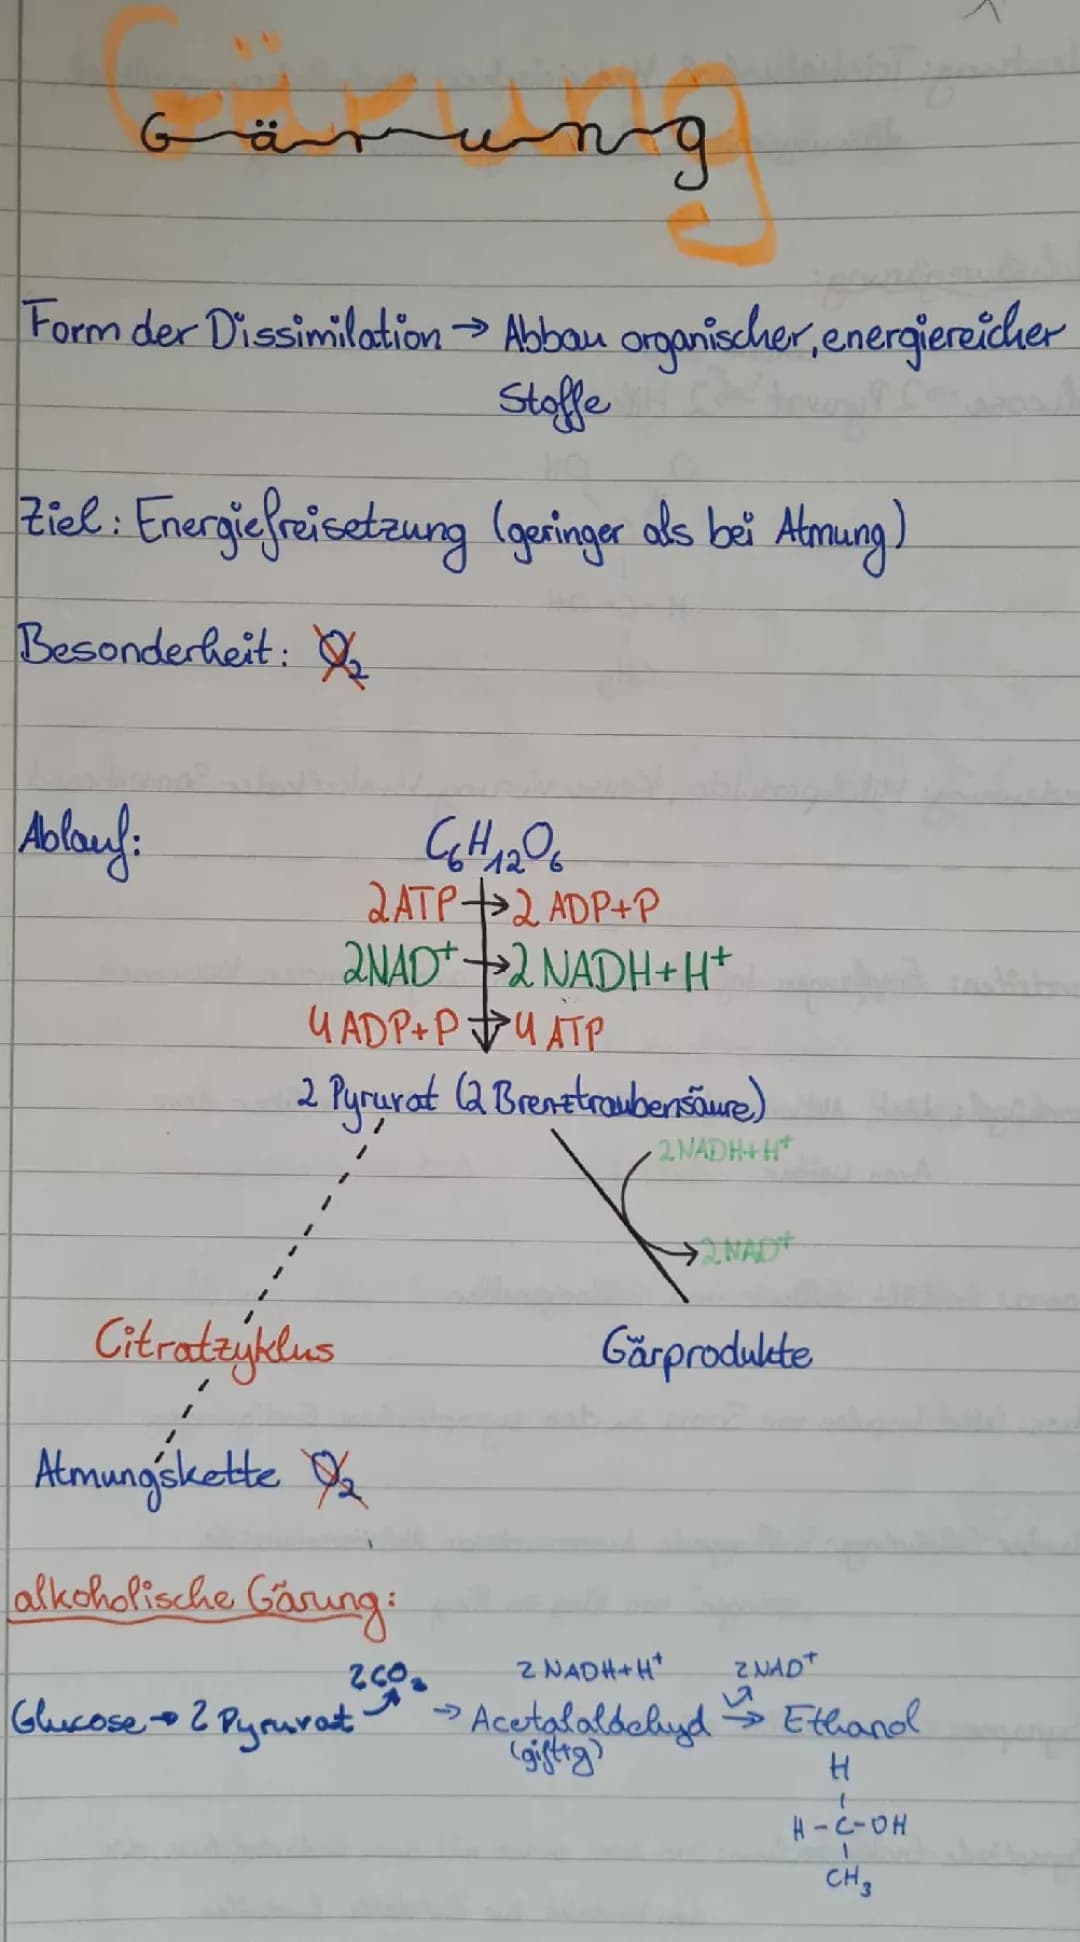 Gärung
Form der Dissimilation → Abbau organischer, energiereicher
Stoffe
Ziel: Energiefreisetzung (geringer als bei Atmung)
Besonderheit: O₂
Ablauf:
C₆H₁₂O₆
2 ATP → 2 ADP+P
2 NAD⁺ → 2 NADH+H⁺
4 ADP+P → 4 ATP
2 Pyruvat (2 Brenztraubensäure)
2 NADH+H⁺
→ 2 NAD⁺
Citratzyklus
Gärprodukte
Atmungskette O₂
alkoholische Gärung:
2 CO₂ 2 NADH+H⁺ 2 NAD⁺
Glucose → 2 Pyruvat → Acetalaldehyd → Ethanol
(giftig)
H
H-C-OH
CH₃